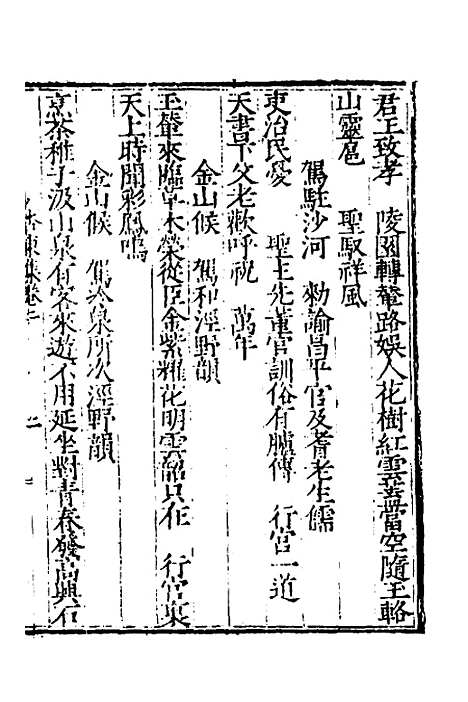 君王致孝　陵園轉輦路娛人花樹紅雲蓋當空隨玉輅
山靈扈　聖馭祥風
駕駐沙河　勑諭昌平官及耆老生儒
吏治民憂　聖王先董官訓俗有臚傳　行宮一道
天書下父老歡呼祝　萬年
金山候　駕和涇野韻
玉輦來臨草木榮從臣金紫耀花明雲韶只在　行宮裏
天上時聞彩鳳鳴
金山候　駕冷泉所次涇野韻
烹茶稚子汲山泉有客來遊不用延坐對青春發高興石
東集卷